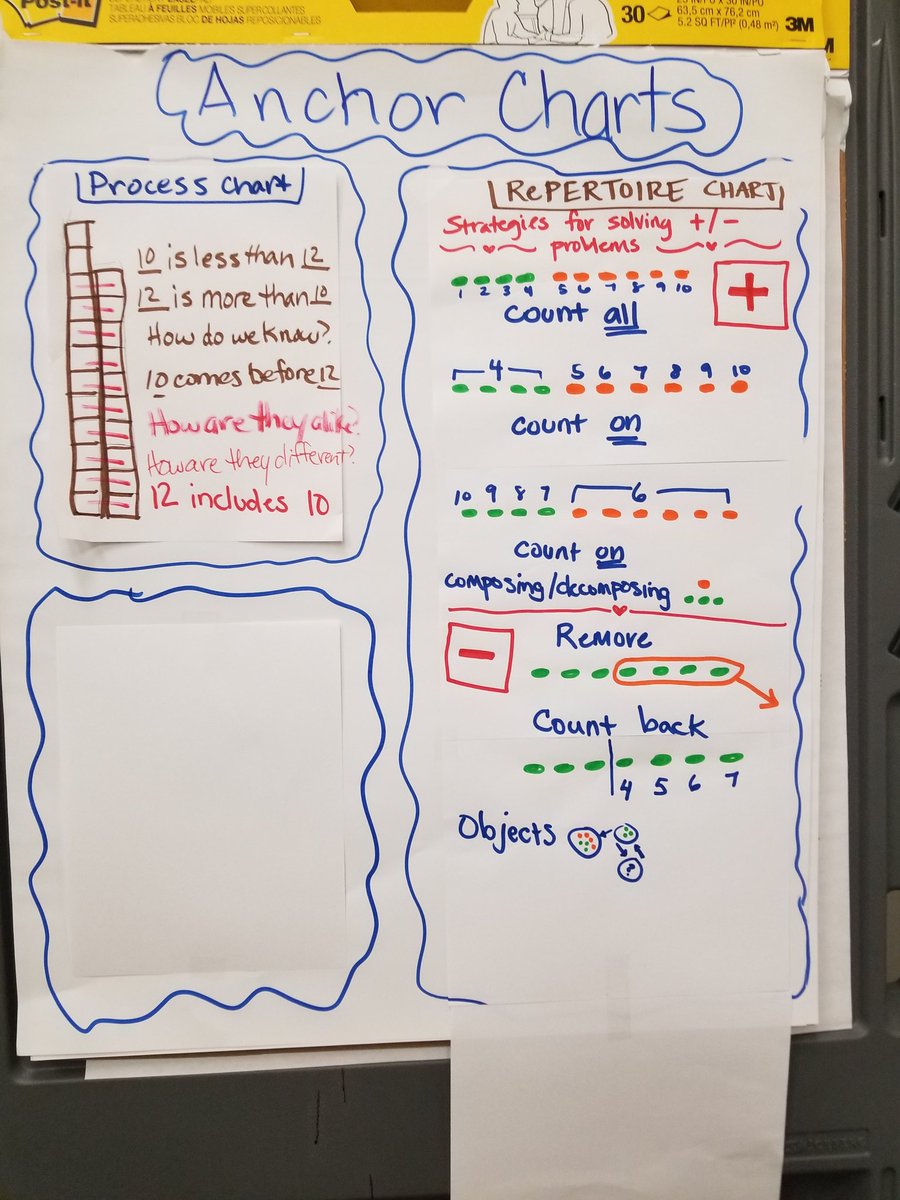 Post-it
TABLEAU À FEUILLES MOBILES SUPERCOLLANTES
SUPERADHESIVAS BLOC DE HOJAS REPOSICIONABLES
30
63,5 cm x 76,2 cm
5.2 SQ FT/PI² (0,48 m²)
3M
Anchor Charts
Process Chart
10 is less than 12
12 is more than 10
How do we know?
10 comes before 12
How are they alike?
How are they different?
12 includes 10
RePERTOIRE CHART
Strategies for solving +/-
problems
+
1 2 3 4 5 6 7 8 9 10
Count all
4 5 6 7 8 9 10
count on
10 9 8 7 6
count on
composing/decomposing
-
Remove
Count back
4 5 6 7
Objects
?